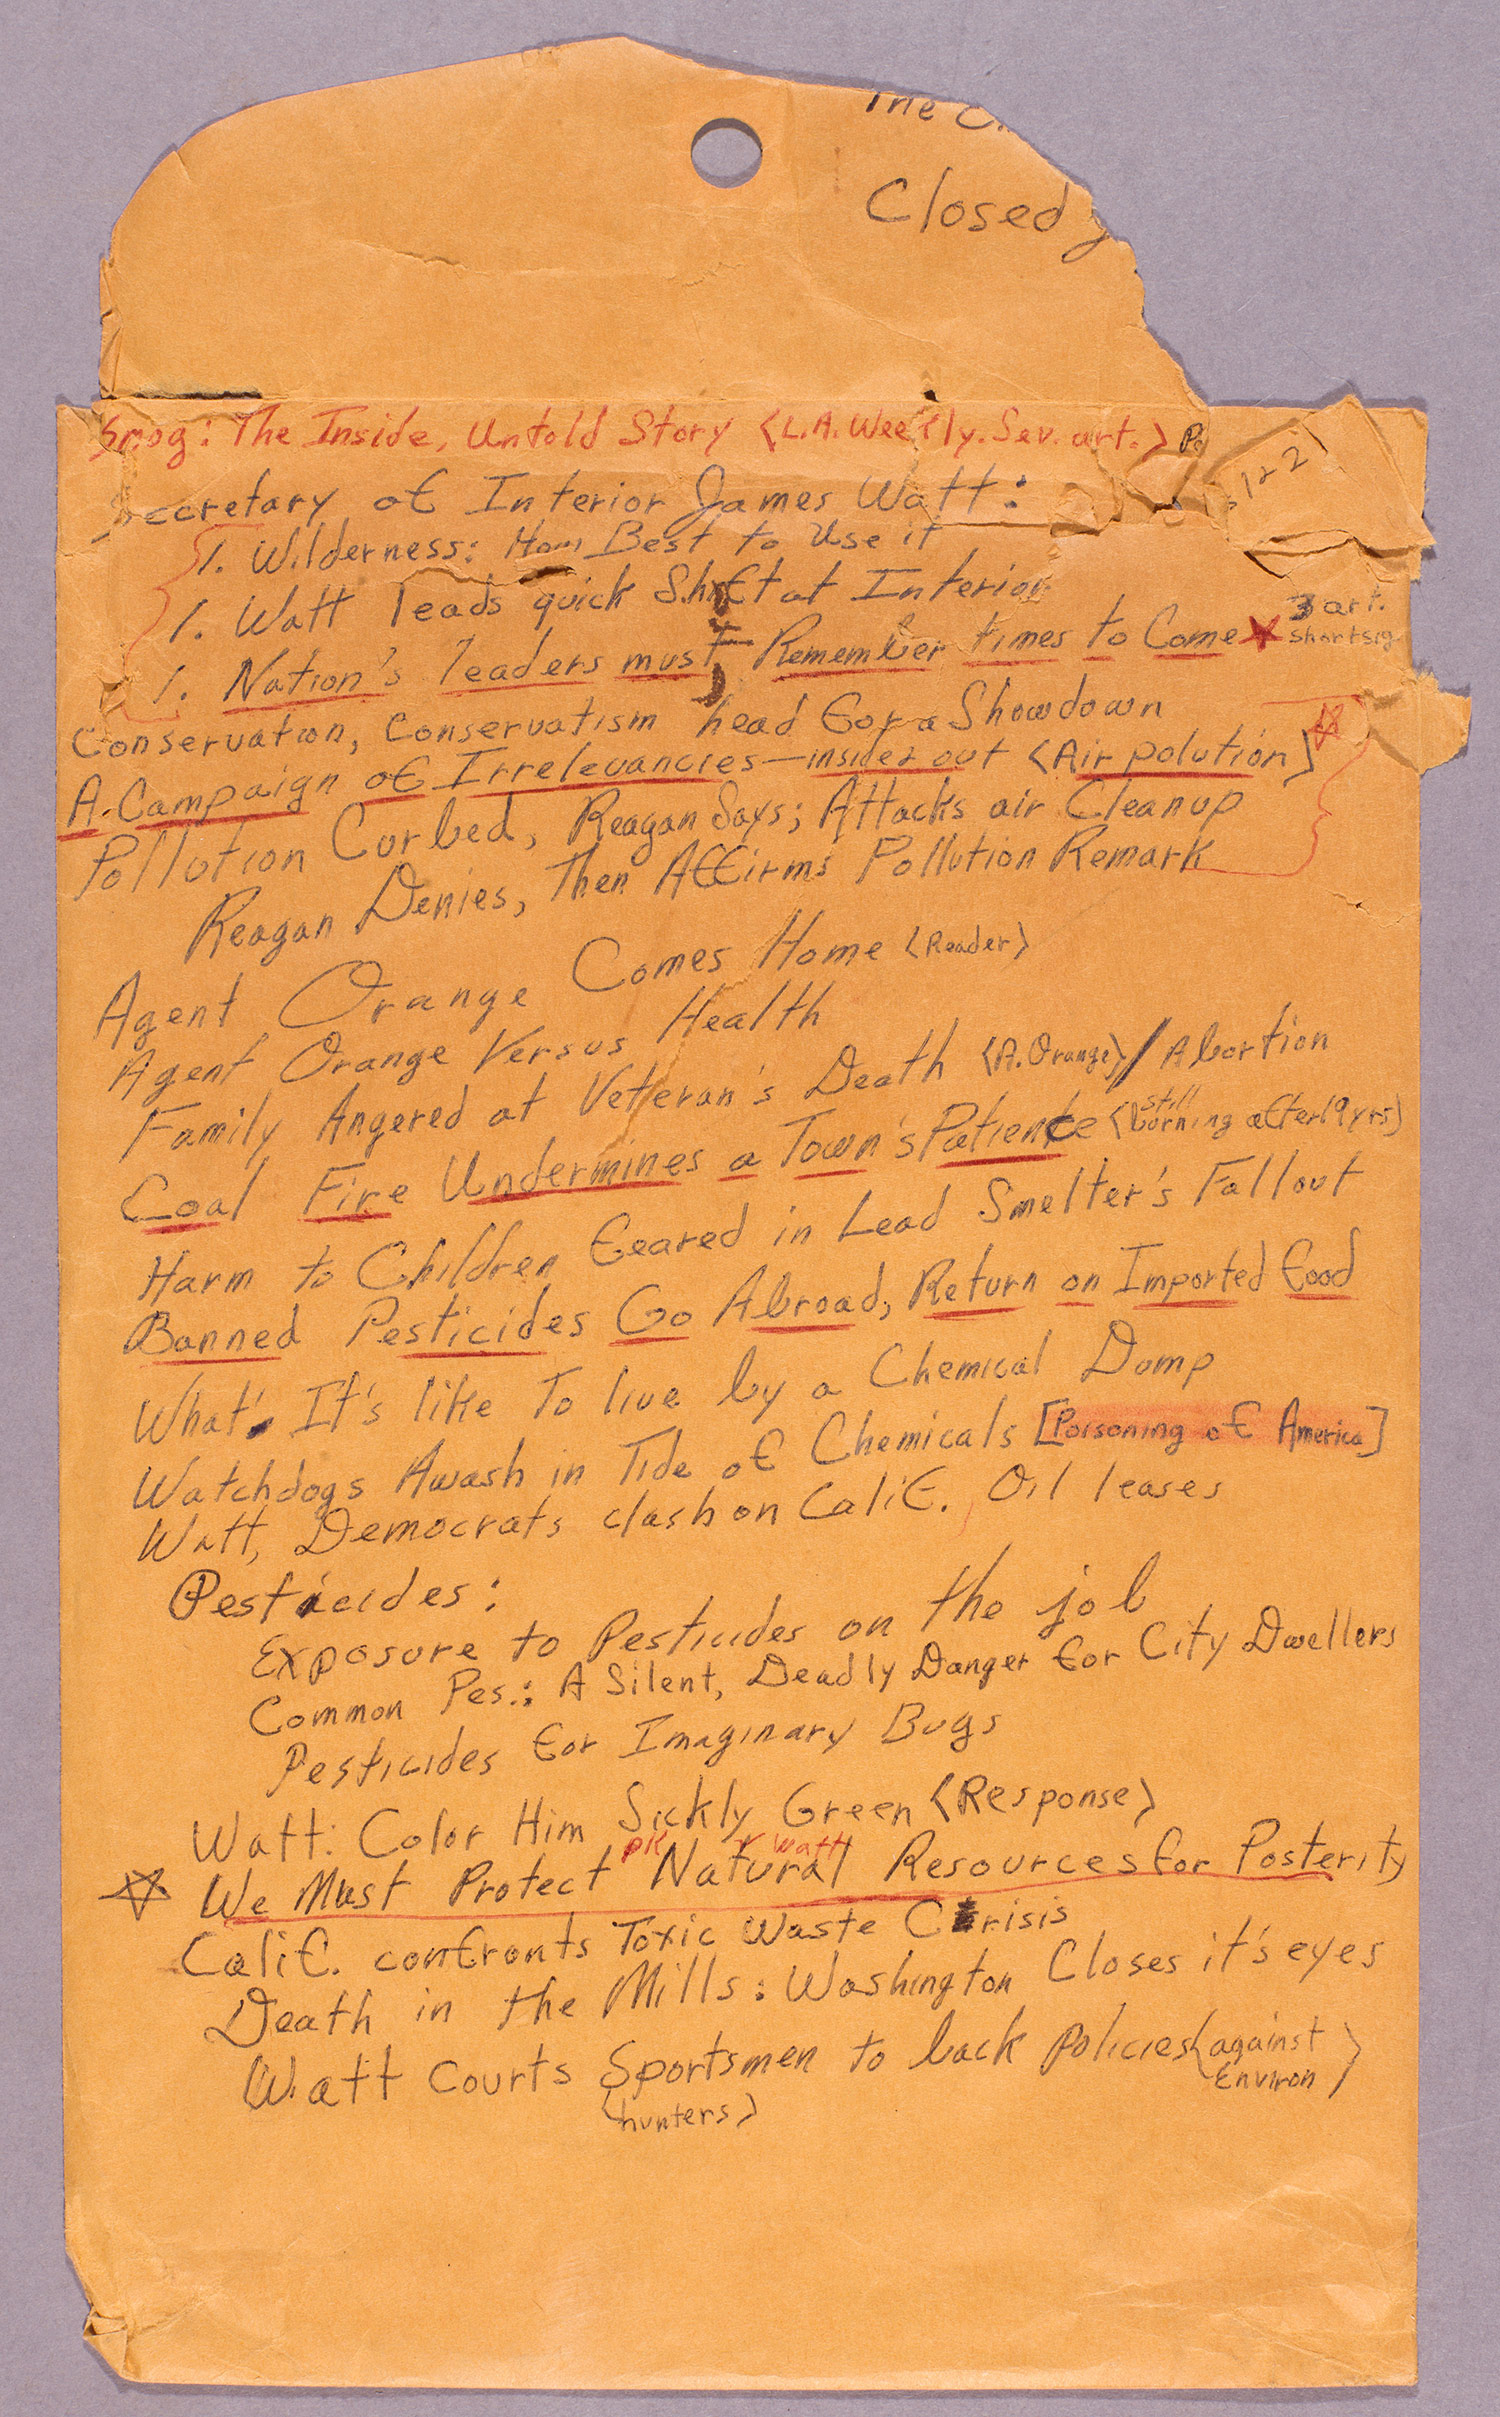 The
Closed
Smog: The Inside, Untold Story <L.A. Weekly. Sev. art.>
1+2
Secretary of Interior James Watt:
1. Wilderness: How Best to Use it
1. Watt leads quick Shift at Interior
1. Nation's leaders must Remember times to Come
3 art.
shortsig
Conservation, Conservatism head for a Showdown
A Campaign of Irrelevancies—insides out <Air polution>
Pollution Curbed, Reagan Says; Attacks air Cleanup
Reagan Denies, Then Affirms Pollution Remark
Agent Orange Comes Home <Reader>
Agent Orange Versus Health
Family Angered at Veteran's Death <A. Orange> / Abortion
Coal Fire Undermines a Town's Patience <still burning after 19 yrs>
Harm to Children feared in Lead Smelter's Fallout
Banned Pesticides Go Abroad, Return on Imported food
What It's like To live by a Chemical Dump
Watchdogs Awash in Tide of Chemicals [Poisoning of America]
Watt, Democrats clash on Calif. Oil leases
Pesticides:
Exposure to Pesticides on the job
Common Pes.: A Silent, Deadly Danger for City Dwellers
Pesticides for Imaginary Bugs
Watt: Color Him Sickly Green <Response>
Watt
We Must Protect Natural Resources for Posterity
Calif. confronts Toxic Waste Crisis
Death in the Mills: Washington Closes it's eyes
Watt Courts Sportsmen to back policies <against Environ>
<hunters>